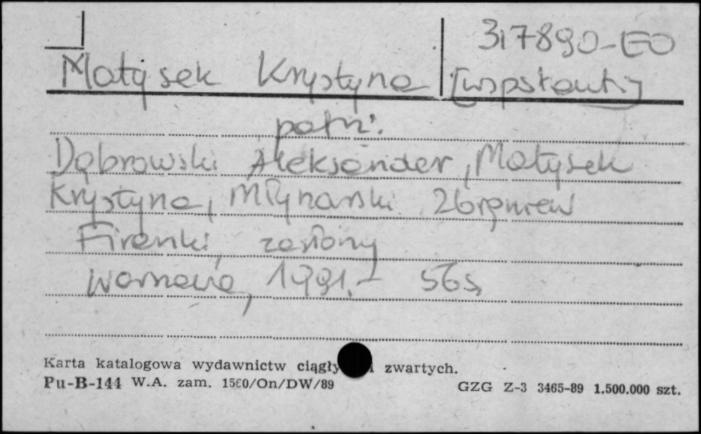 317890-EO
Matysek Krystyna [współaut.]
patrz:
Dąbrowski Aleksander, Matysek
Krystyna, Młynarski Zbigniew
Firanki, zasłony
Warszawa, 1991.- 56s.
Karta katalogowa wydawnictw ciągły i zwartych.
Pu-B-144 W.A. zam. 1560/On/DW/89 GZG Z-3 3465-89 1.500.000 szt.